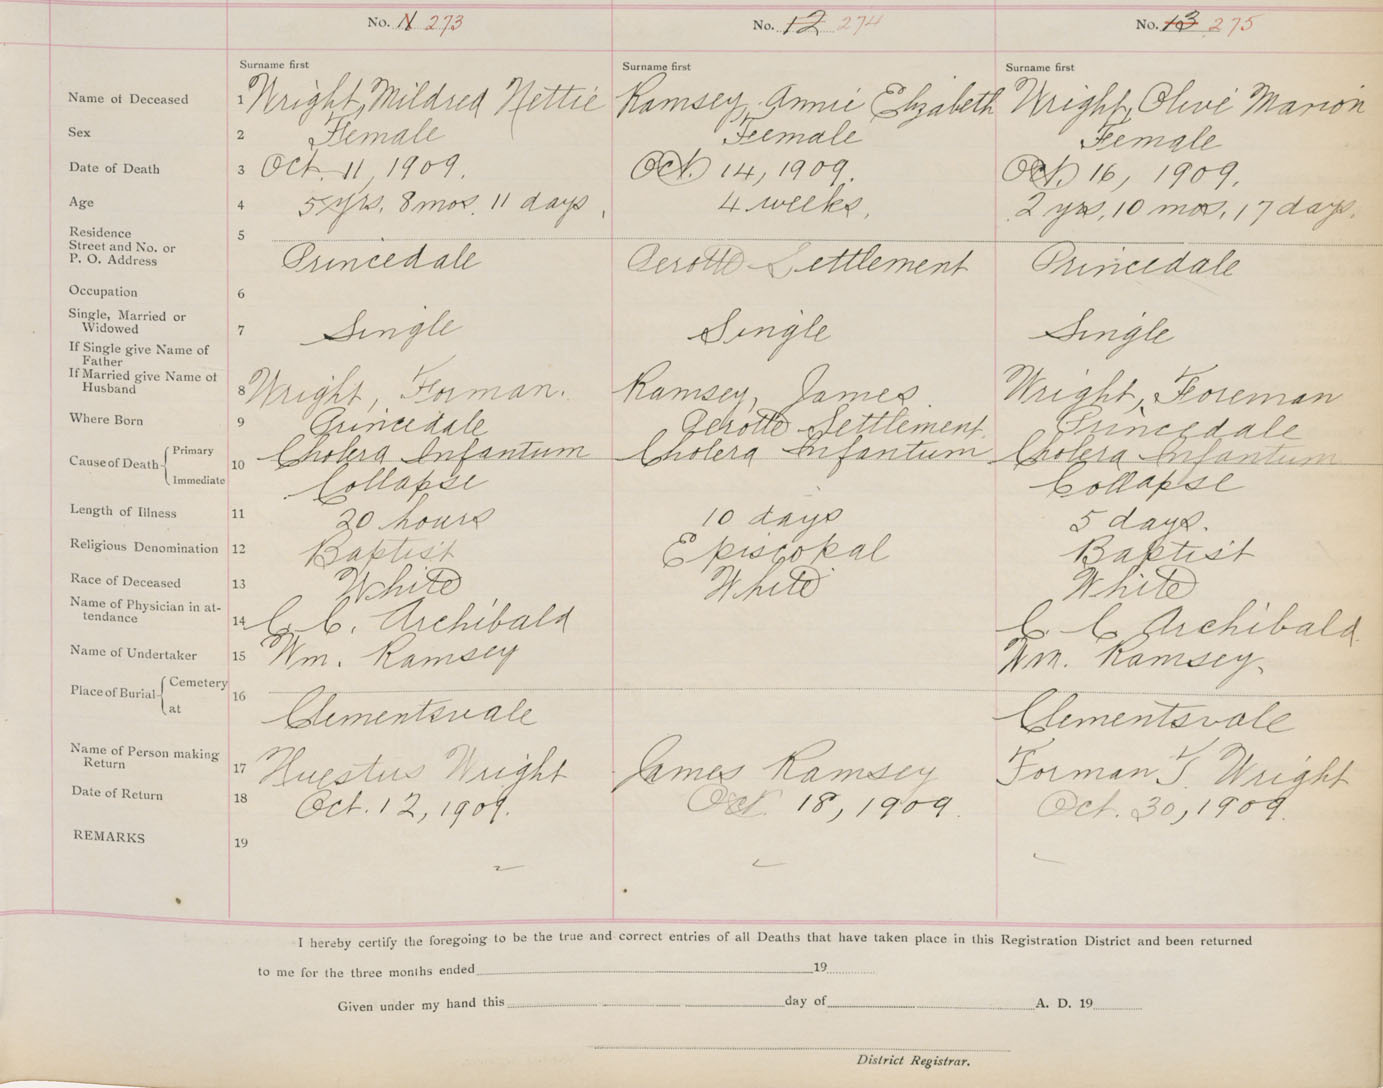 No. 11 273
No. 12 274
No. 13 275
Surname first
Surname first
Surname first
Name of Deceased 1 Wright, Mildred Nettie Ramsey, Annie Elizabeth Wright, Olive Marion
Sex 2 Female Female Female
Date of Death 3 Oct. 11, 1909. Oct. 14, 1909. Oct. 16, 1909.
Age 4 5 yrs. 8 mos. 11 days. 4 weeks. 2 yrs. 10 mos. 17 days.
Residence 5
Street and No. or
P. O. Address Princedale Perotte Settlement Princedale
Occupation 6
Single, Married or
Widowed 7 Single Single Single
If Single give Name of
Father
If Married give Name of
Husband 8 Wright, Forman. Ramsey, James Wright, Foreman
Where Born 9 Princedale Perotte Settlement. Princedale
Cause of Death Primary 10 Cholera Infantum Cholera Infantum Cholera Infantum
Immediate Collapse Collapse
Length of Illness 11 20 hours 10 days 5 days.
Religious Denomination 12 Baptist Episcopal Baptist
Race of Deceased 13 White White White
Name of Physician in at-
tendance 14 C. C. Archibald C. C. Archibald
Name of Undertaker 15 Wm. Ramsey Wm. Ramsey.
Place of Burial Cemetery 16
at Clementsvale Clementsvale
Name of Person making
Return 17 Huestus Wright James Ramsey Forman T. Wright
Date of Return 18 Oct. 12, 1909. Oct. 18, 1909. Oct. 30, 1909.
REMARKS 19
I hereby certify the foregoing to be the true and correct entries of all Deaths that have taken place in this Registration District and been returned
to me for the three months ended 19
Given under my hand this day of A. D. 19
District Registrar.